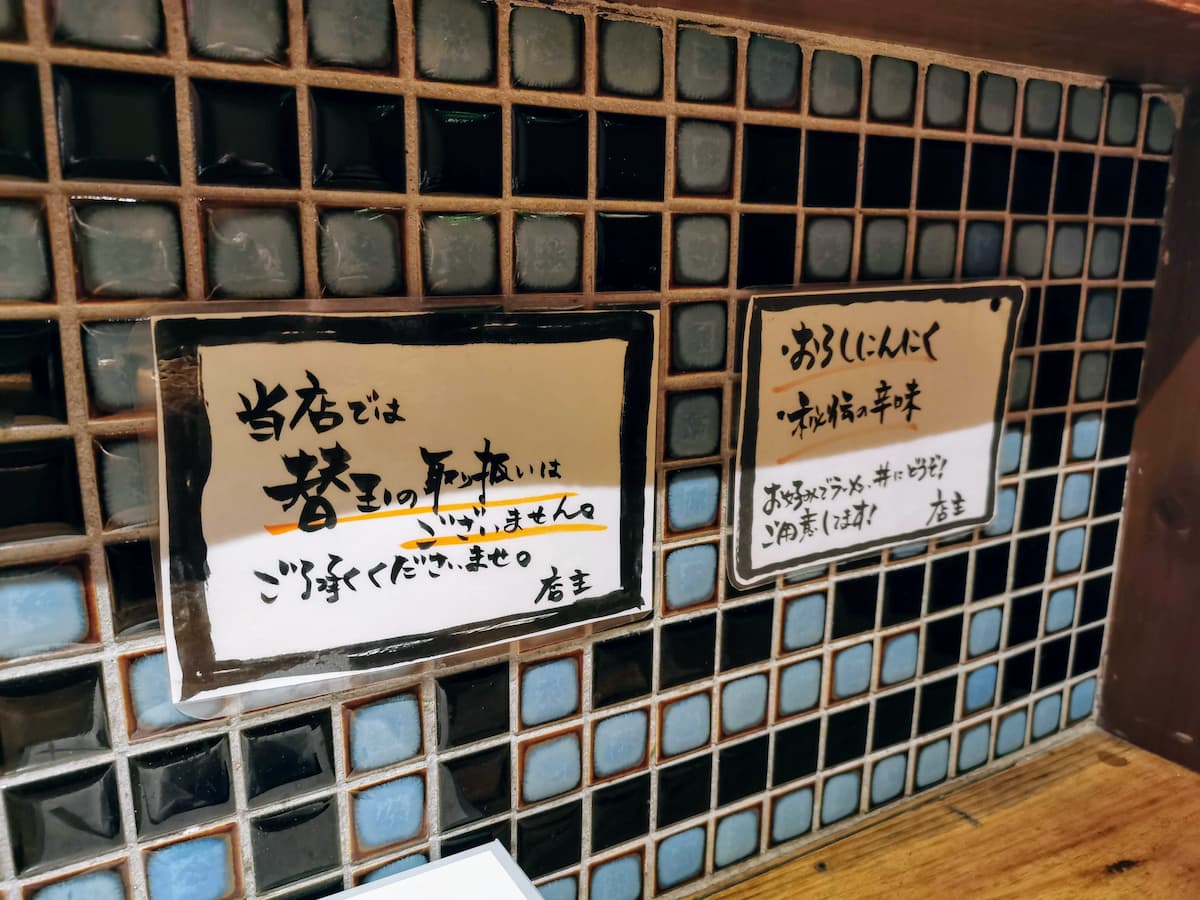 当店では
替玉の取り扱いは
ございません。
ご了承くださいませ。
店主
・おろしにんにく
・秘伝の辛味
お好みでラーメン、丼にどうぞ!
ご用意してます!
店主